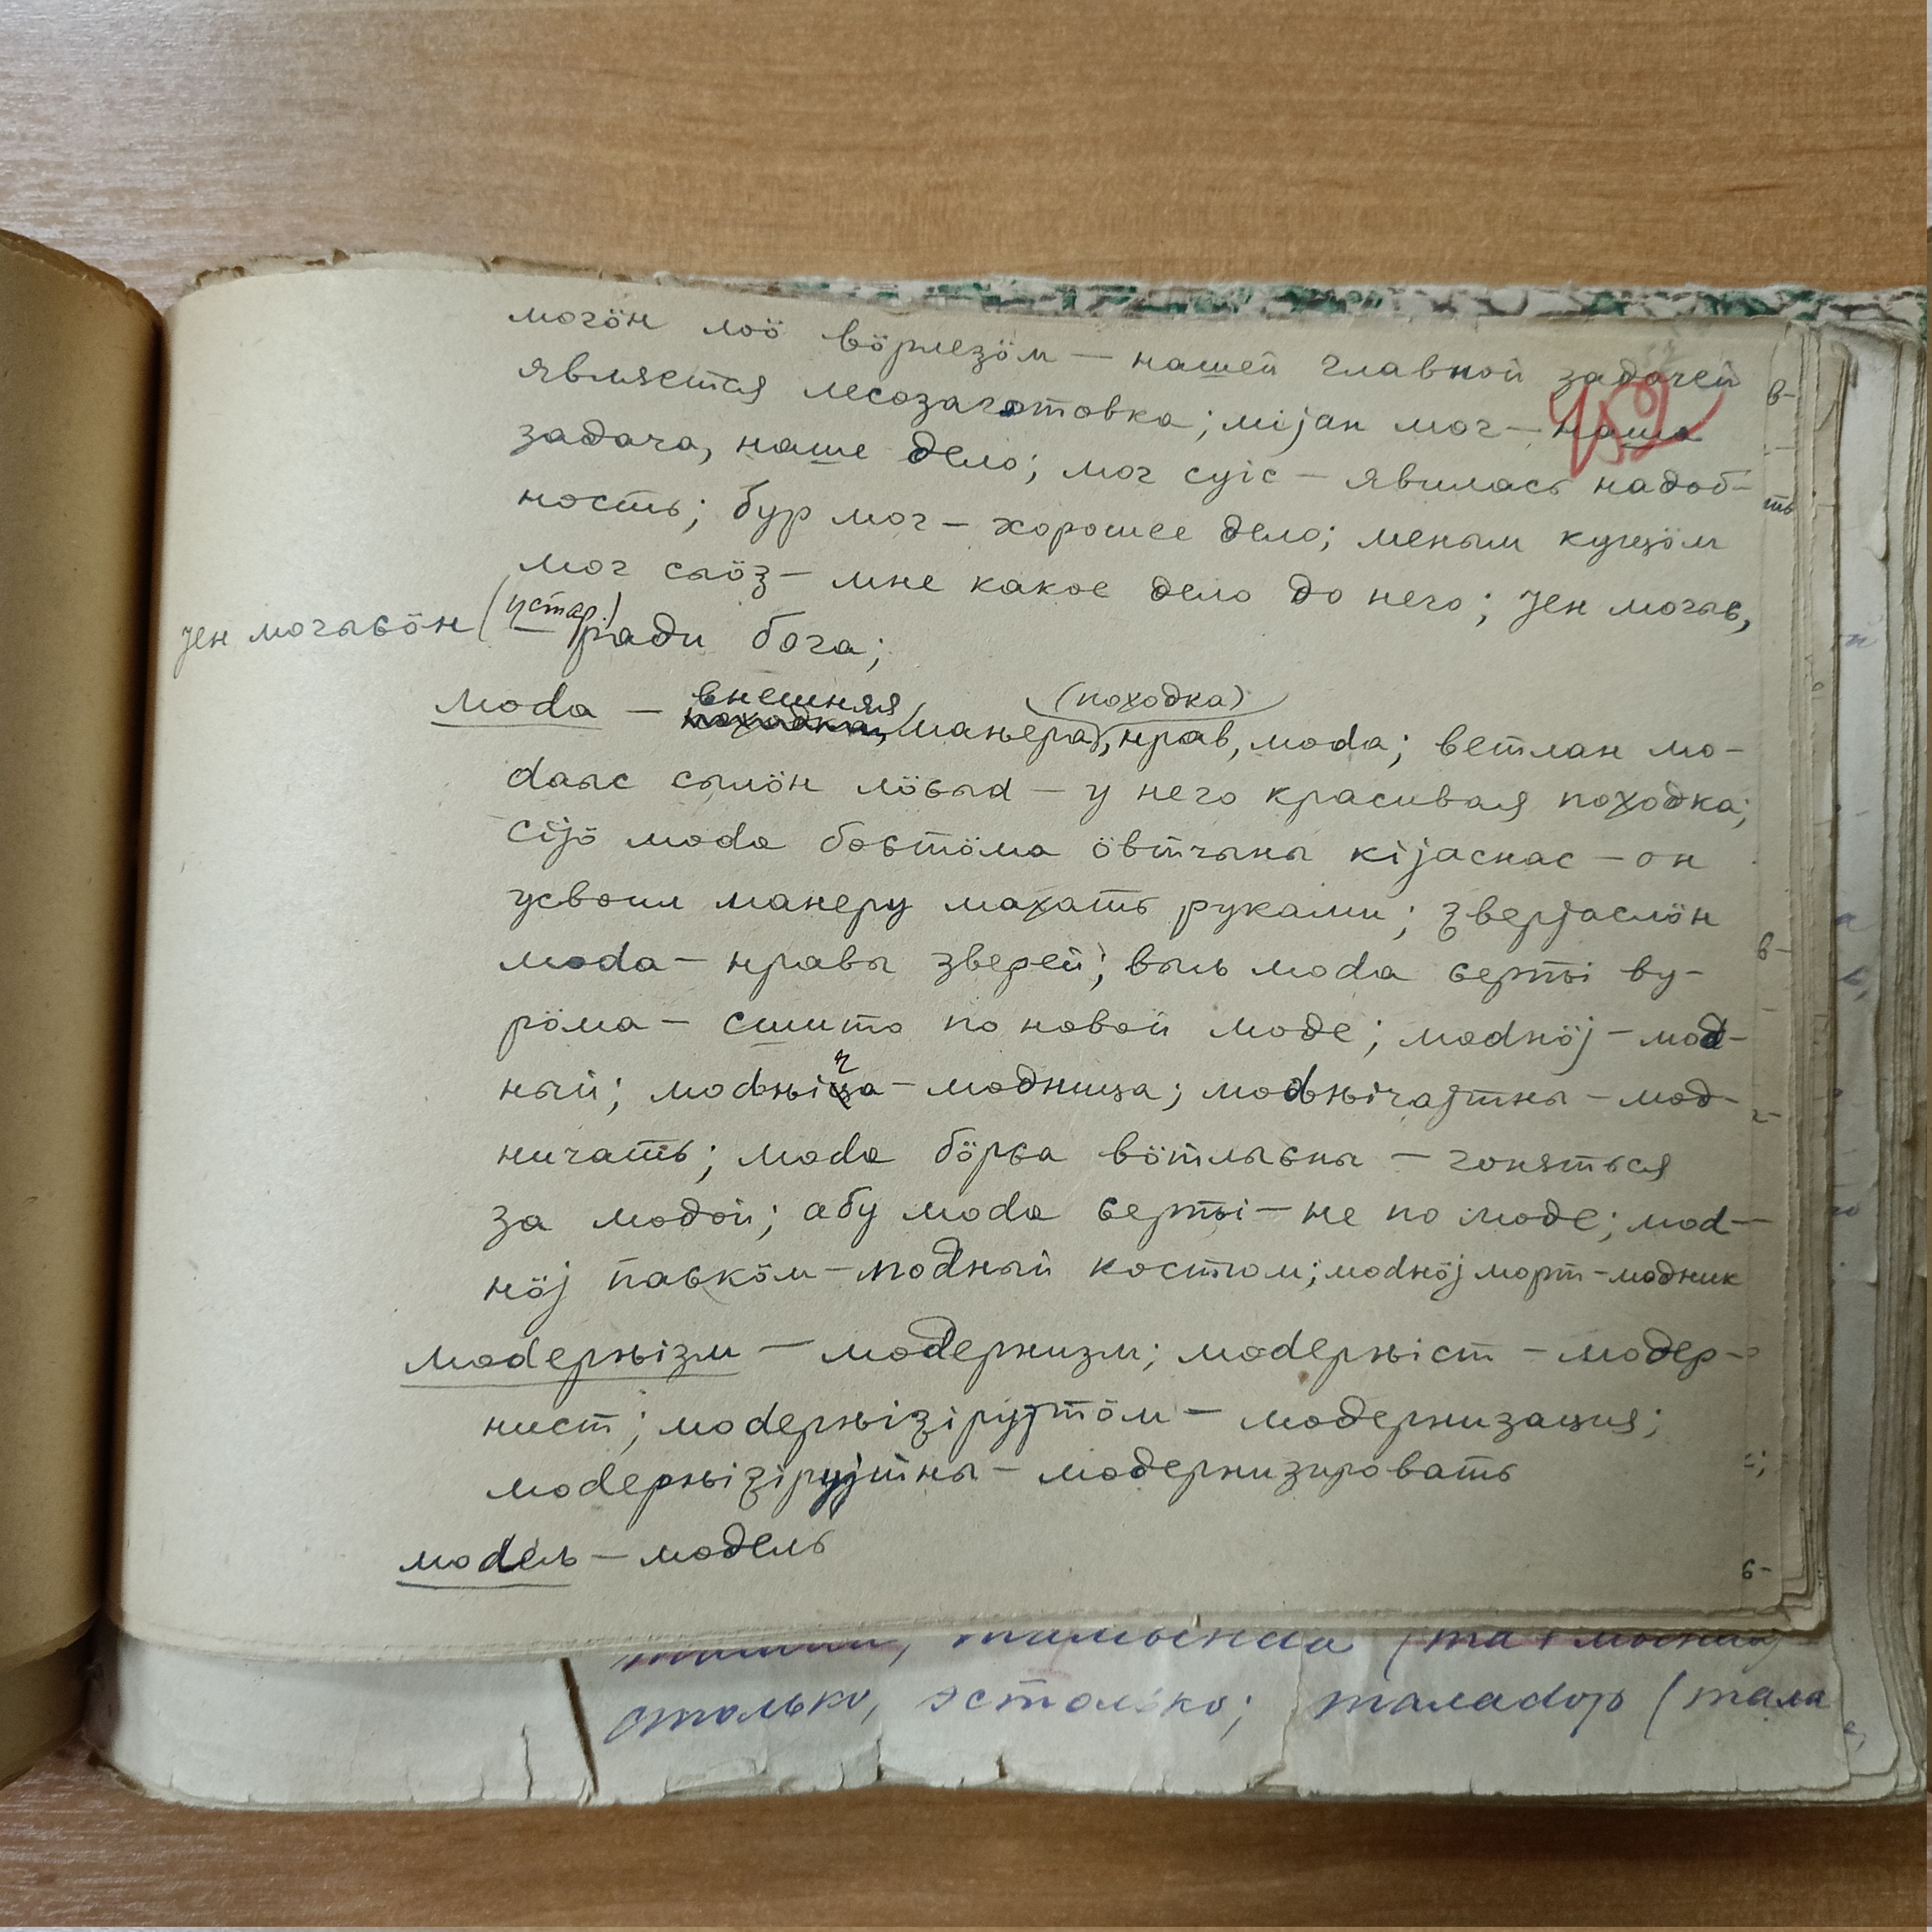 могӧн лоӧ вӧрлезӧм — нашей главной задачей
152
является лесозаготовка; міjан мог — наша
задача, наше дело; мог суіс — явилась надоб-
ность; бур мог — хорошее дело; меным кущӧм
мог сыӧз — мне какое дело до него; Jен могыԍ,
Jен могыԍӧн (устар.) — ради бога;
моdа — внешняя манера, (походка) нрав, моdа; ветлан мо-
dаыс сылӧн лӧԍыd — у него красивая походка;
сіjӧ моdа боԍтӧма ӧвтчыны кіjаснас — он
усвоил манеру махать руками; зверjаслӧн
моdа — нравы зверей; выль моdа ԍерті ву-
рӧма — сшито по новой моде; моdнӧj — мод-
ный; моdњіча — модница; моdњічаjтны — мод-
ничать; моdа бӧрԍа вӧтлыԍны — гоняться
за модой; абу моdа ԍерті — не по моде; моd-
нӧj паԍкӧм — модный костюм; моdнӧj морт — модник
моdерњізм — модернизм; моdерњіст — модер-
нист; моdерњізіруjтӧм — модернизация;
моdерњізіруjтны — модернизировать
моdель — модель
столько, эстолько; таладор (тала